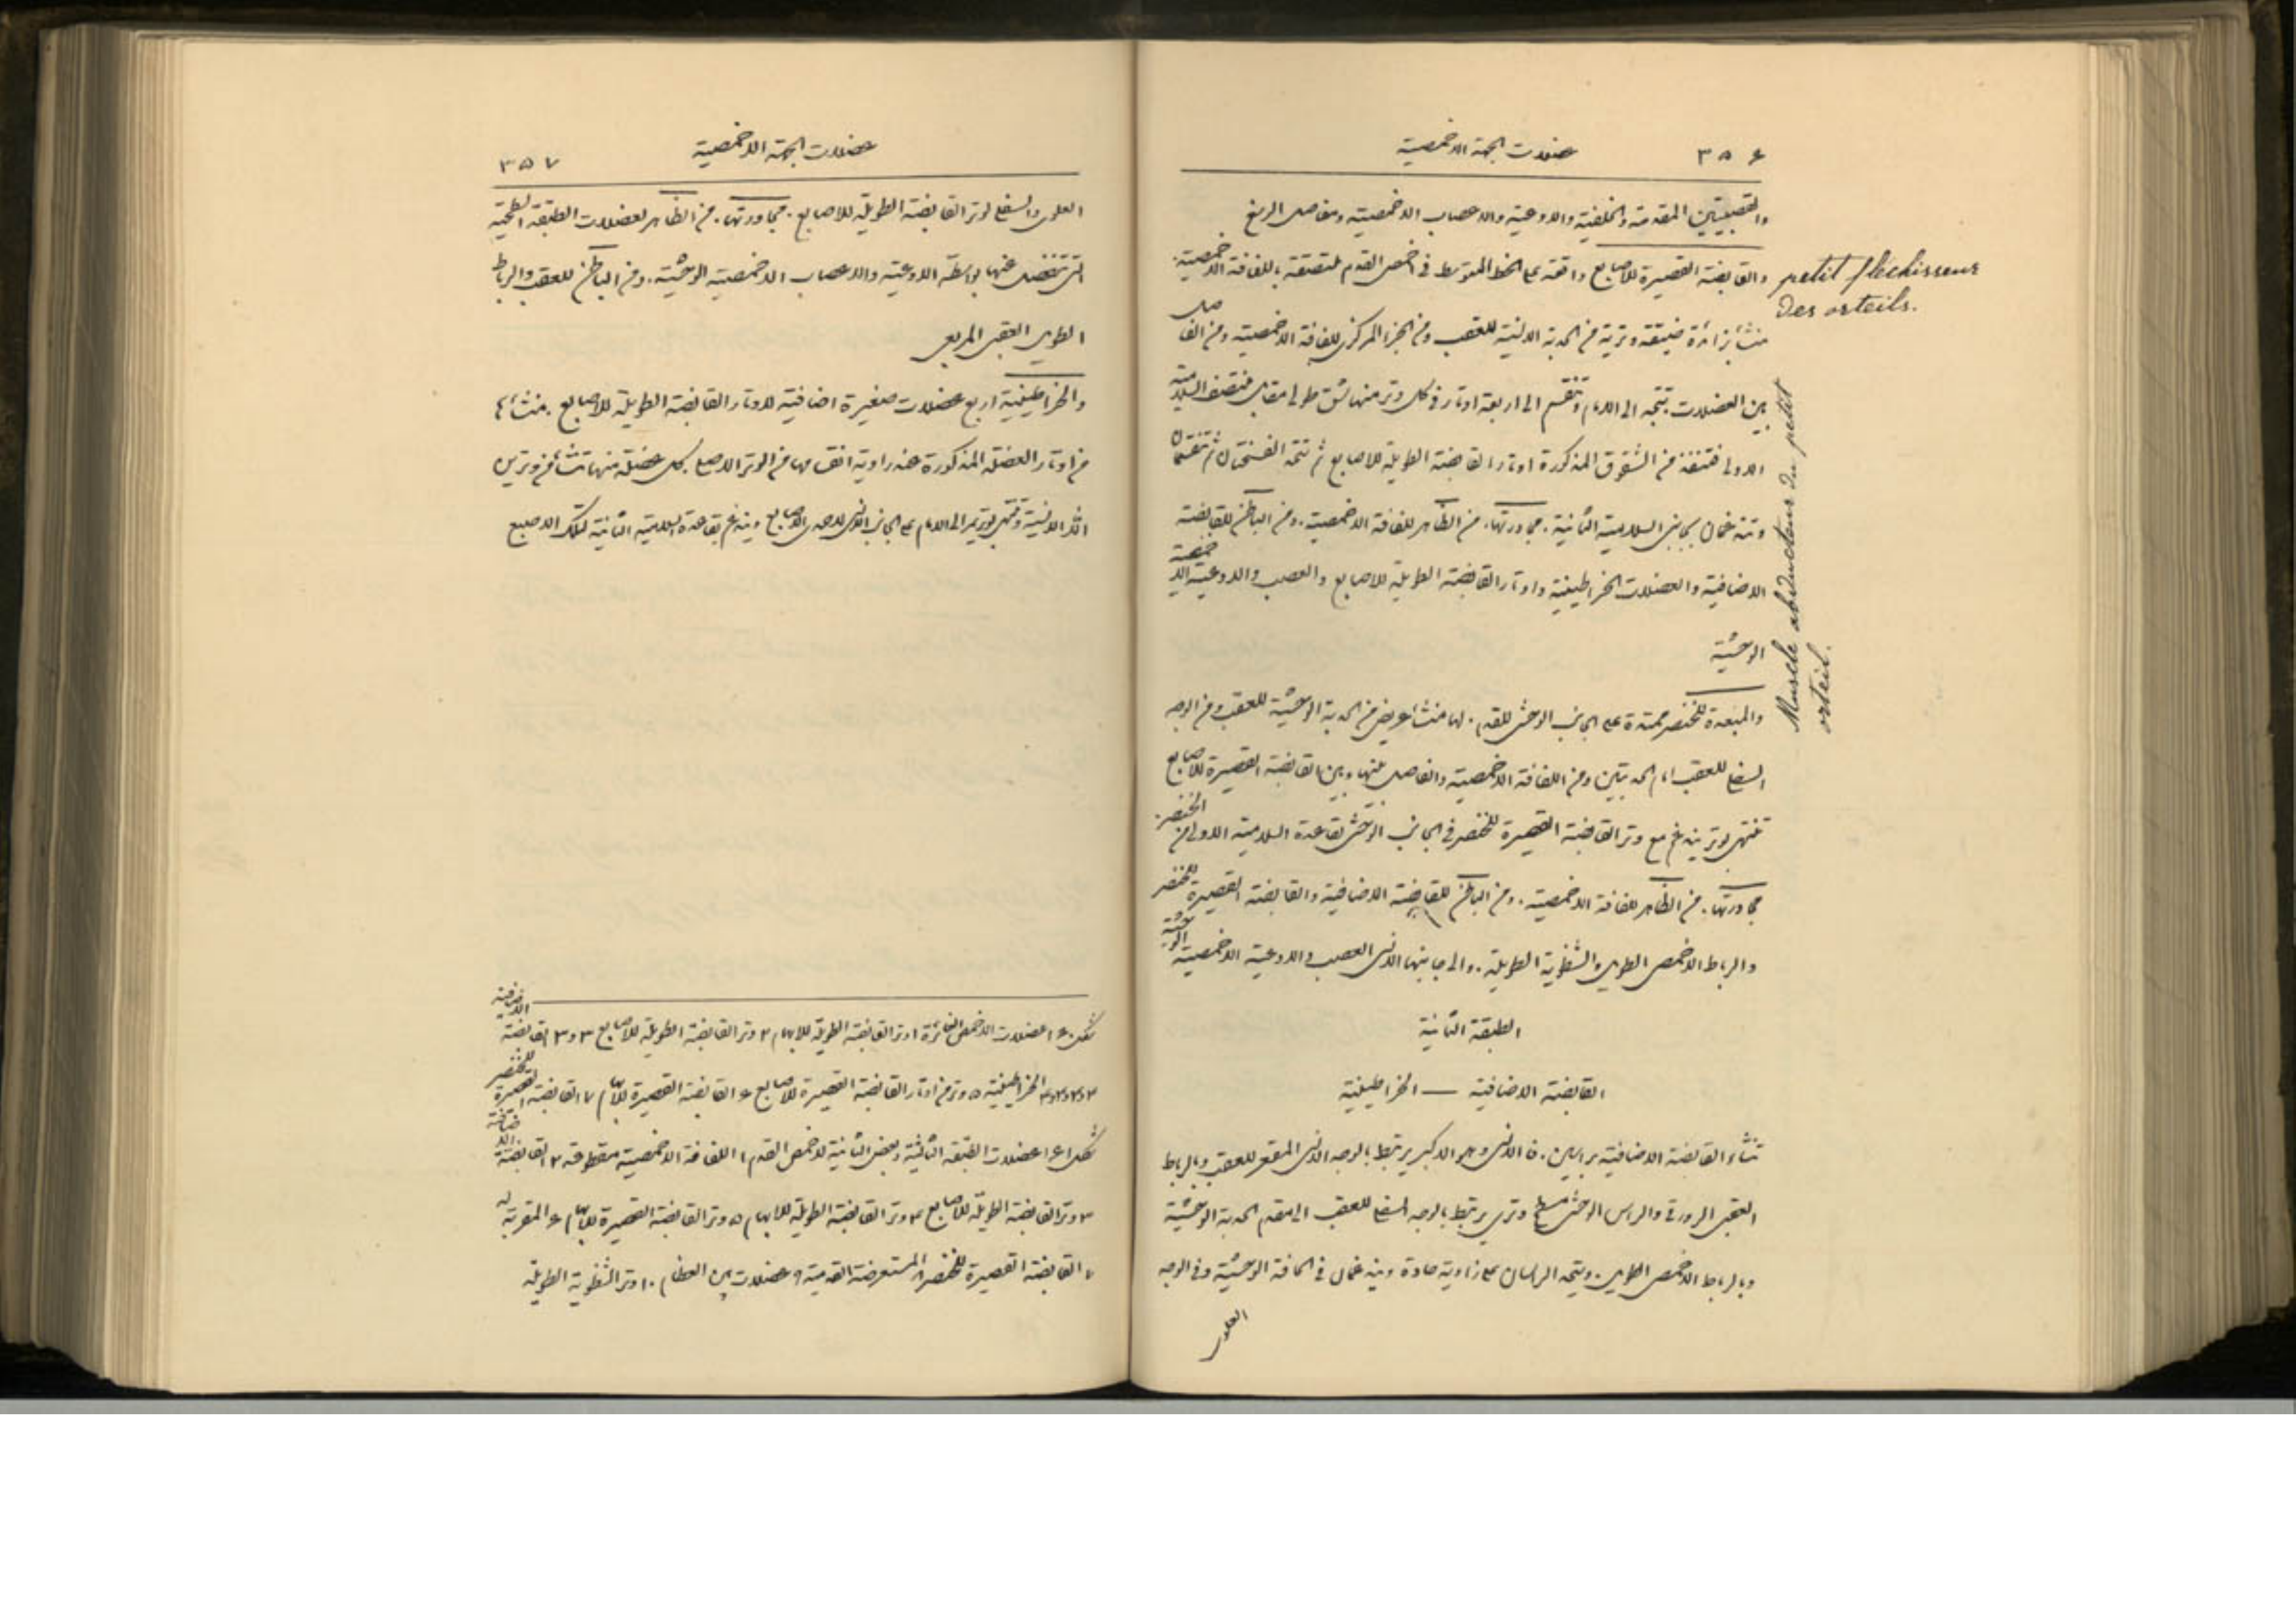 ٣٥٦ عضلات الجهة الاخمصية
والقصبيتين المقدمة والخلفية والاوعية والاعصاب الاخمصية ومفاصل الرسغ
والقابضة القصيرة للاصابع واقعة على الخط المتوسط في اخمص القدم ملتصقة باللفافة الاخمصية.
petit fléchisseur
des orteils.
منشأ بزائدة ضيقة وترية من الحدبة الانسية للعقب ومن الجزء المركزي للفافة الاخمصية ومن الفاصل
بين العضلات تتجه الى الامام وتنقسم الى اربعة اوتار في كل وتر منها شق طولي مقابل منتصف السلامية
الاولى فتنفذ من الشقوق المذكورة اوتار القابضة الطويلة للاصابع ثم تتحد القسمتان ثم تنقسمان
وتندغمان بجانبي السلامية الثانية. مجاورتها. من الظاهر للفافة الاخمصية. ومن الباطن للقابضة
الاضافية والعضلات الخراطينية واوتار القابضة الطويلة للاصابع والعصب والاوعية الاخمصية
الوحشية
Muscle abducteur du petit
orteil.
والمبعدة للخنصر ممتدة على الجانب الوحشي للقدم. لها منشأ عريض من الحدبة الوحشية للعقب ومن الوجه
السفلي للعقب امام الحدبتين ومن اللفافة الاخمصية والفاصل بينها وبين القابضة القصيرة للاصابع
تنتهي بوتر يندغم مع وتر القابضة القصيرة للخنصر في الجانب الوحشي لقاعدة السلامية الاولى من الخنصر.
مجاورتها. من الظاهر للفافة الاخمصية. ومن الباطن للقابضة الاضافية والقابضة القصيرة للخنصر
والرباط الاخمصي الطويل والشظوية الطويلة. والى جانبها الانسي العصب والاوعية الاخمصية الوحشية
الطبقة الثانية
القابضة الاضافية — الخراطينية
تنشأ القابضة الاضافية براسين. فالانسي وهو الاكبر يرتبط بالوجه الانسي المقعر للعقب وبالرباط
العقبي الزورقي والراس الوحشي مسطح وتري يرتبط بالوجه السفلي للعقب الى مقدم الحدبة الوحشية
وبالرباط الاخمصي الطويل. ويتحد الراسان على زاوية حادة ويندغمان في الحافة الوحشية وفي الوجه
العلوي
عضلات الجهة الاخمصية ٣٥٧
العلوي والسفلي لوتر القابضة الطويلة للاصابع. مجاورتها. من الظاهر لعضلات الطبقة السطحية
التي تنفصل عنها بواسطة الاوعية والاعصاب الاخمصية الوحشية. ومن الباطن للعقب والرباط
الطويل العقبي المربعي
والخراطينية اربع عضلات صغيرة اضافية لاوتار القابضة الطويلة للاصابع. منشأها
من اوتار العضلة المذكورة عند زاوية انقسامها من الوتر الاصلي. كل عضلة منها تنشأ من وترين
الا الانسية وتنتهي بوتر يمر الى الامام على الجانب الانسي لاحدى الاصابع ويندغم بقاعدة السلامية الثانية لتلك الاصبع
شكل ١٤٠ عضلات الاخمص الغائرة ١ وتر القابضة الطويلة للابهام ٢ وتر القابضة الطويلة للاصابع ٣ و٣ القابضة الاضافية
الخراطينية ٥ وتر من اوتار القابضة القصيرة للاصابع ٦ القابضة القصيرة للابهام ٧ القابضة القصيرة للخنصر
شكل ١٤١ عضلات الطبقة الثالثة وبعض الثانية لاخمص القدم ١ اللفافة الاخمصية مقطوعة ٢ القابضة الاضافية
٣ وتر القابضة الطويلة للاصابع ٤ وتر القابضة الطويلة للابهام ٥ وتر القابضة القصيرة للابهام ٦ المقربة له
٧ القابضة القصيرة للخنصر ٨ المستعرضة القدمية ٩ عضلات بين العظام ١٠ وتر الشظوية الطويلة